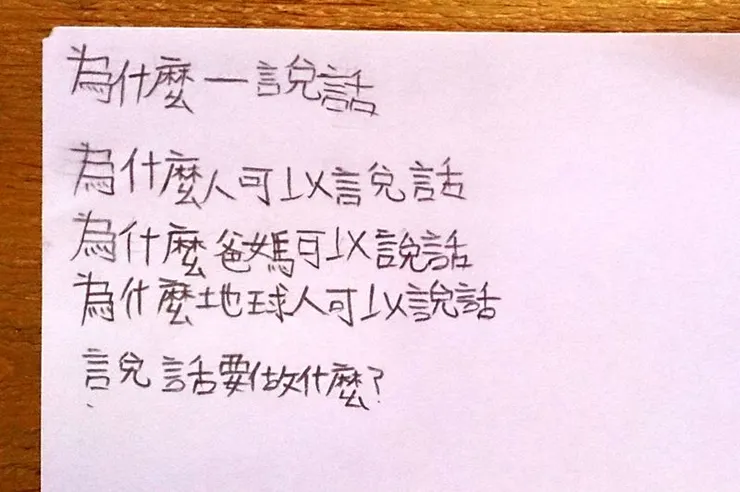 為什麼一說話
為什麼人可以說話
為什麼爸媽可以說話
為什麼地球人可以說話
說話要做什麼?